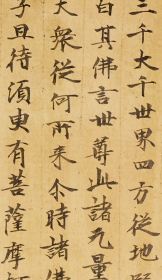 三千大千世界四方從地踊
白其佛言世尊此諸无量
大衆從何所来尒時諸佛
子且待湏臾有菩薩摩訶